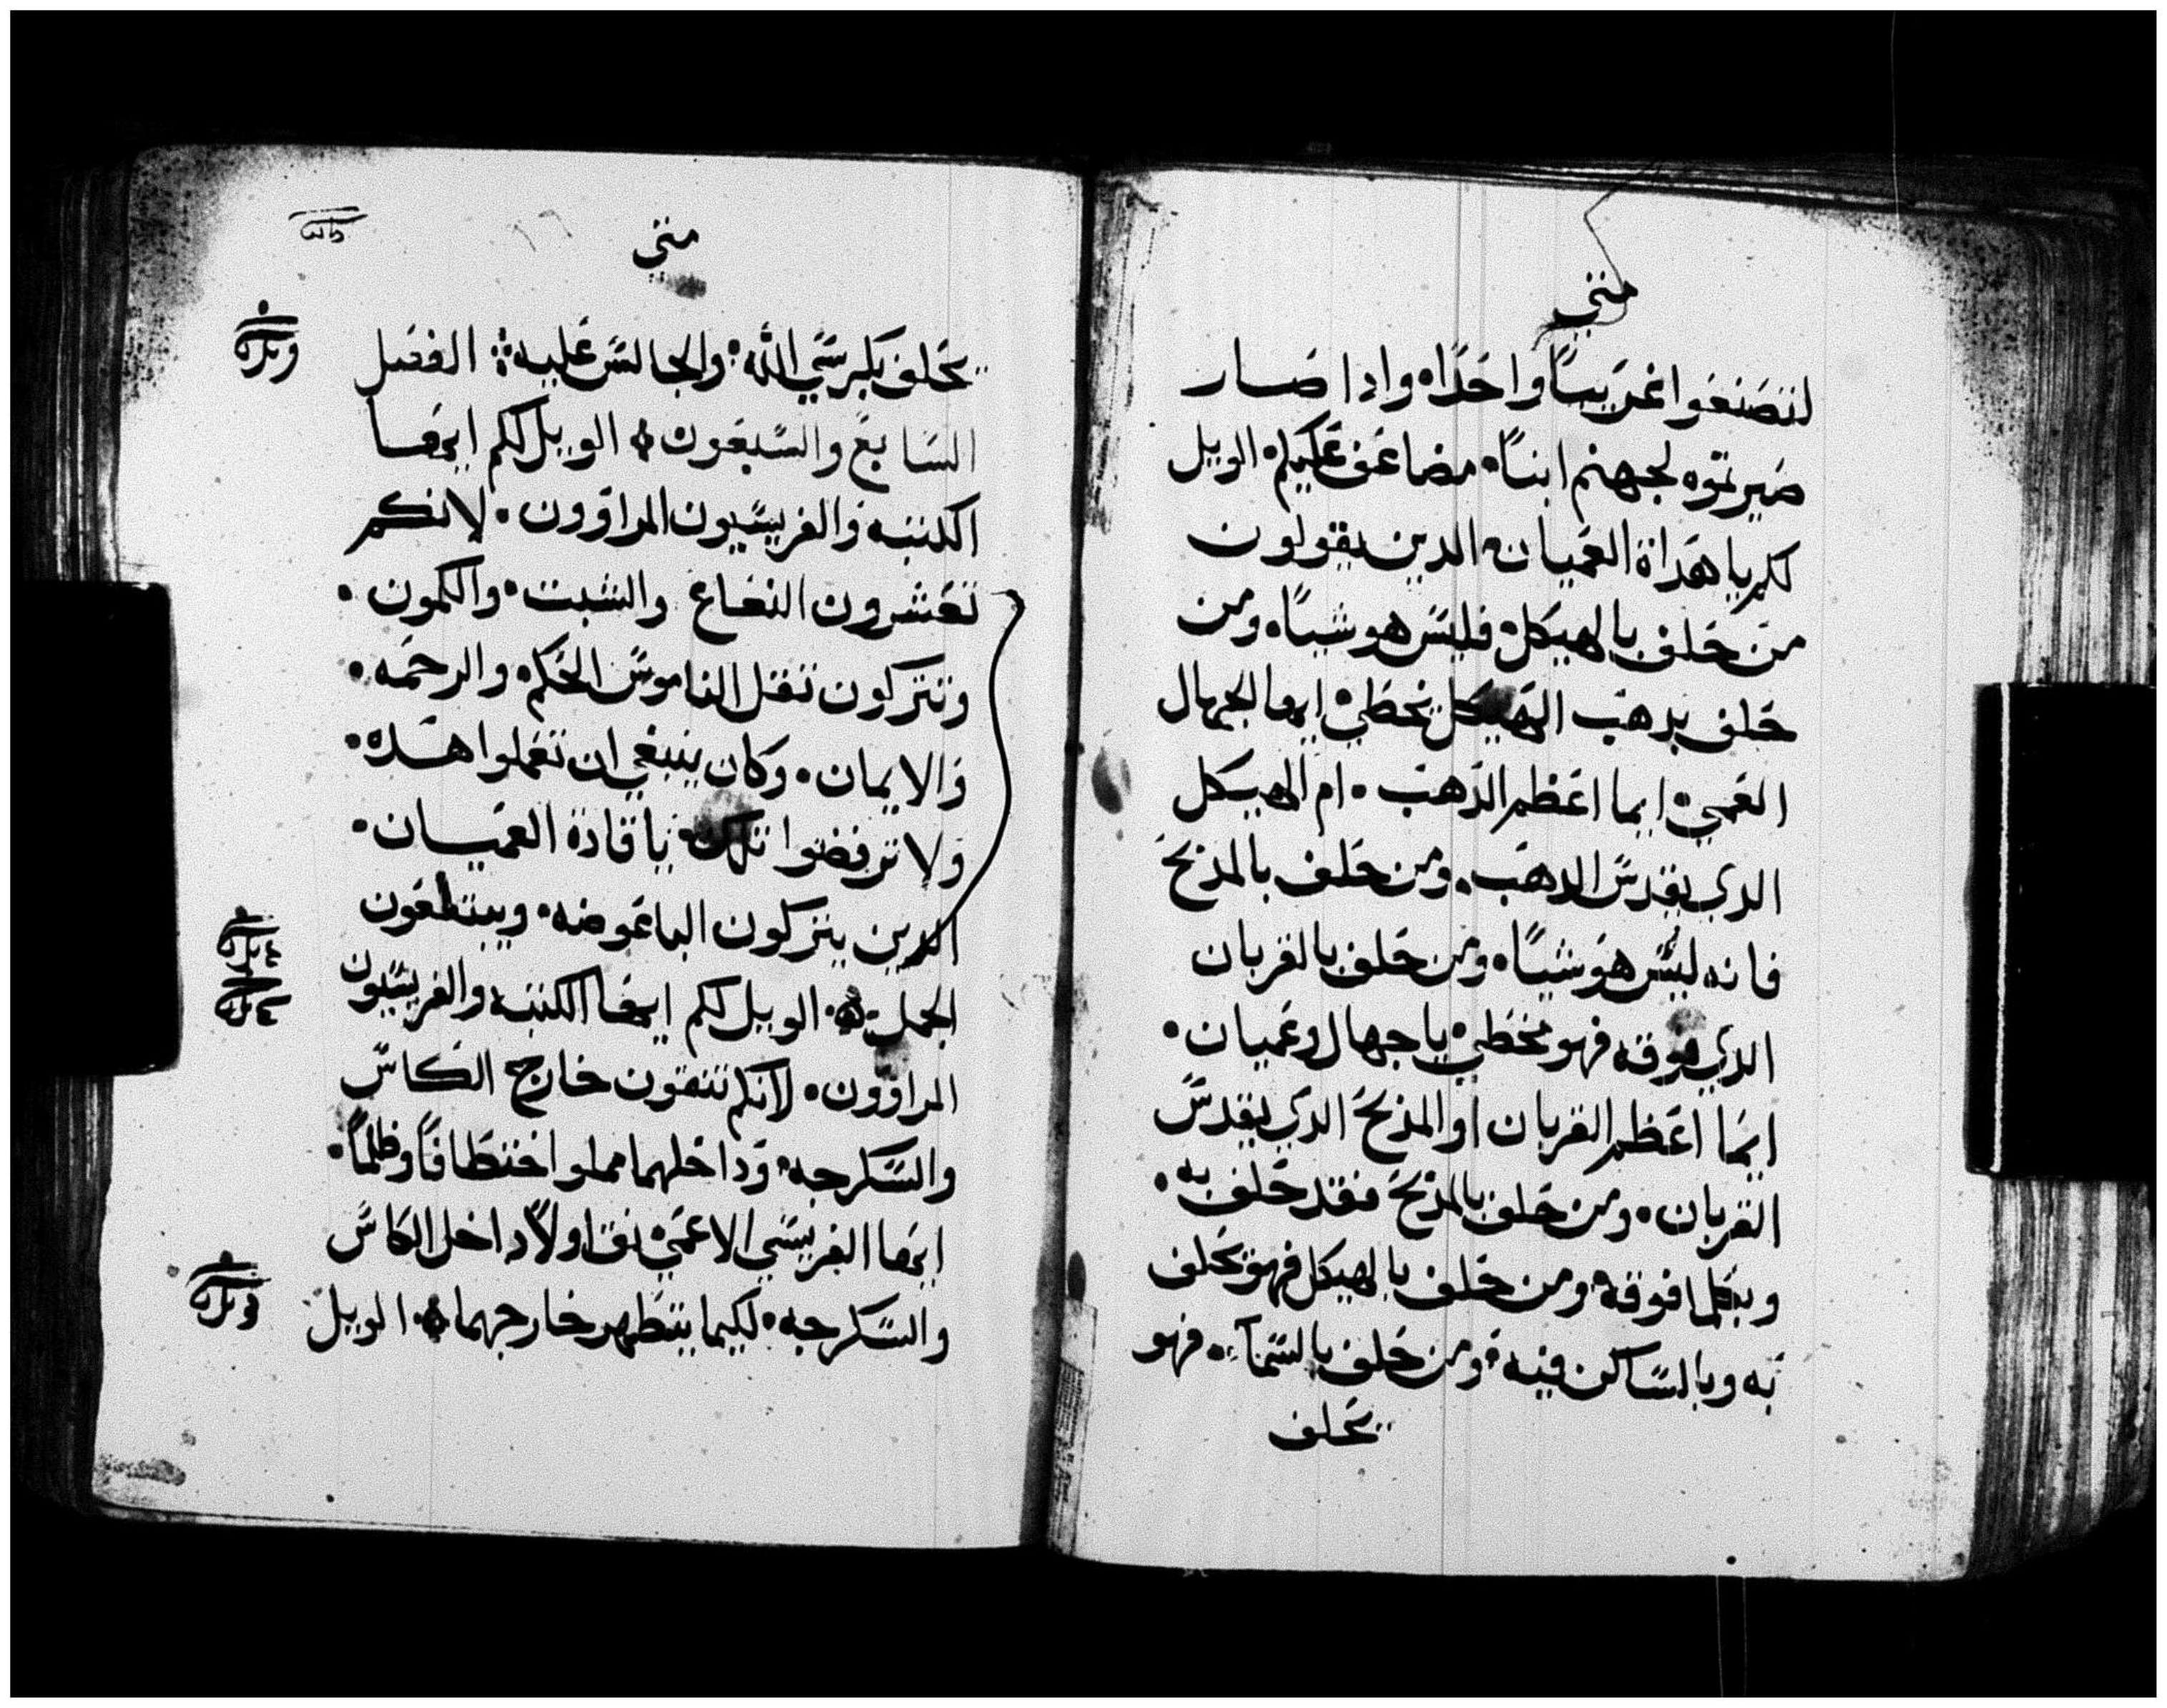 متي
لتصنعوا غريبًا واحدًا۰ وادا صار
صيرتموه لجهنم ابنًا۰ مضاعف عليكم۰ الويل
لكم يا هداة العميان۰ الدين يقولون
من حلف بالهيكل۰ فليس هو شيًا۰ ومن
حلف بدهب الهيكل يخطي۰ ايها الجهال
العمي۰ ايما اعظم الذهب۰ ام الهيكل
الدي يقدس الدهب۰ ومن حلف بالمذبح
فانه ليس هو شيًا۰ ومن حلف بالقربان
الدي فوقه فهو مخطي۰ يا جهال وعميان۰
ايما اعظم القربان او المذبح الدي يقدس
القربان۰ ومن حلف بالمذبح فقد حلف به۰
وبكلما فوقه۰ ومن حلف بالهيكل فهو يحلف
به وبالساكن فيه۰ ومن حلف بالسمآء۰ فهو
يحلف
متي
يحلف بكرسي الله۰ والجالس عليه؞ الفصل
السابع والسبعون۰ الويل لكم ايها
الكتبه والفريسيون المراوون۰ لانكم
تعشرون النعناع والشبت۰ والكمون۰
وتتركون تقل الناموس الحكم۰ والرحمه۰
والايمان۰ وكان ينبغي ان تعملوا هده۰
ولا ترفضوا تلك۰ يا قادة العميان۰
الدين يتركون الباعوضه۰ ويبتلعون
الجمل۰ الويل لكم ايها الكتبه والفريسيون
المراوون۰ لانكم تنقون خارج الكاس
والسكرجه۰ وداخلهما مملوا اختطافًا وظلمًا۰
ايها الفريسي الاعمي۰ نق اولاً داخل الكاس
والسكرجه۰ لكيما يتطهر خارجهما۰ الويل